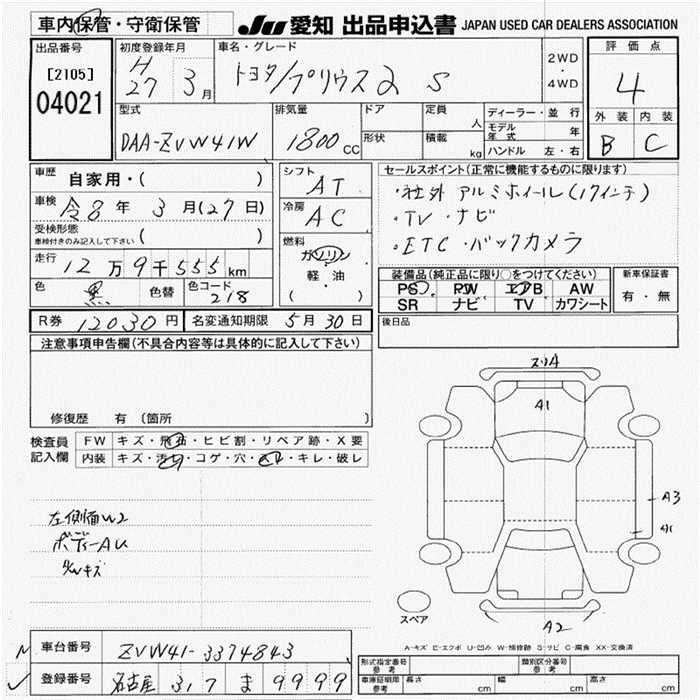 車内保管・守衛保管
JU 愛知 出品申込書 JAPAN USED CAR DEALERS ASSOCIATION
出品番号
[2105]
04021
初度登録年月
H 27 3月
車名・グレード
トヨタ/プリウスα S
2WD・4WD
評価点
4
外装 内装
B C
型式
DAA-ZVW41W
排気量
1800cc
ドア
形状
定員 人
積載 kg
ディーラー・並行
モデル年式 年
ハンドル 左・右
車歴 自家用・( )
車検 令8年3月(27日)
受検形態
車検付きのみ記入して下さい ( )
走行 12万9千555km
色 黒 色替 色コード 218
シフト AT
冷房 AC
燃料
ガソリン
軽・油
( )
セールスポイント(正常に機能するものに限ります)
・社外アルミホイール(17インチ)
・TV・ナビ
・ETC・バックカメラ
装備品(純正品に限り○をつけてください)
PS PW エアB AW
SR ナビ TV カワシート
新車保証書
有・無
R券 12030円 名変通知期限 5月30日
後日品
注意事項申告欄(不具合内容等は具体的に記入して下さい)
修復歴 有 (箇所 )
検査員記入欄
FW キズ・飛石・ヒビ割・リペア跡・X要
内装 キズ・汚れ・コゲ・穴・スレ・キレ・破レ
左側面W2
ボディーAU
A1
A3
A1
A2
スペア
A-キズ E-エクボ U-凹み W-補修跡 S-サビ C-腐食 XX-交換済
車台番号 ZVW41-3374843
登録番号 名古屋 317 ま 9999
形式指定番号 参考
類別区分番号 参考
車庫証明用 参考 長さ cm 幅 cm 高さ cm